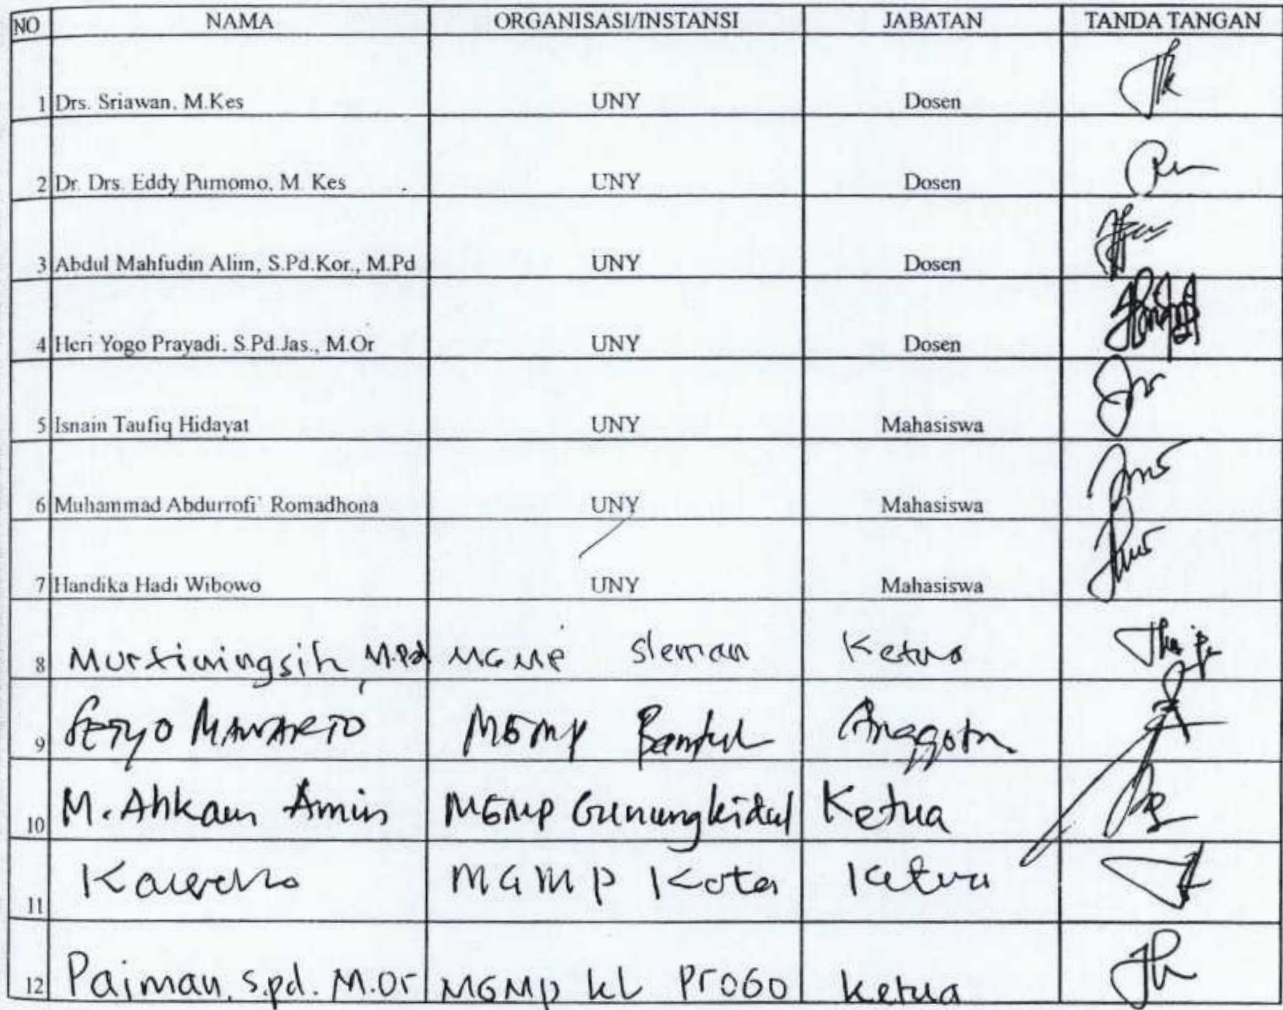 NO NAMA ORGANISASI/INSTANSI JABATAN TANDA TANGAN
1 Drs. Sriawan, M.Kes UNY Dosen
2 Dr. Drs. Eddy Purnomo, M. Kes UNY Dosen
3 Abdul Mahfudin Alim, S.Pd.Kor., M.Pd UNY Dosen
4 Heri Yogo Prayadi, S.Pd.Jas., M.Or UNY Dosen
5 Isnain Taufiq Hidayat UNY Mahasiswa
6 Muhammad Abdurrofi' Romadhona UNY Mahasiswa
7 Handika Hadi Wibowo UNY Mahasiswa
8 Murtiningsih, M.Pd MGMP Sleman Ketua
9 SETYO MGMP Bantul Anggota
10 M. Ahkam Amin MGMP Gunungkidul Ketua
11 MGMP Kota Ketua
12 Paiman, S.pd. M.Or MGMP KL PROGO Ketua